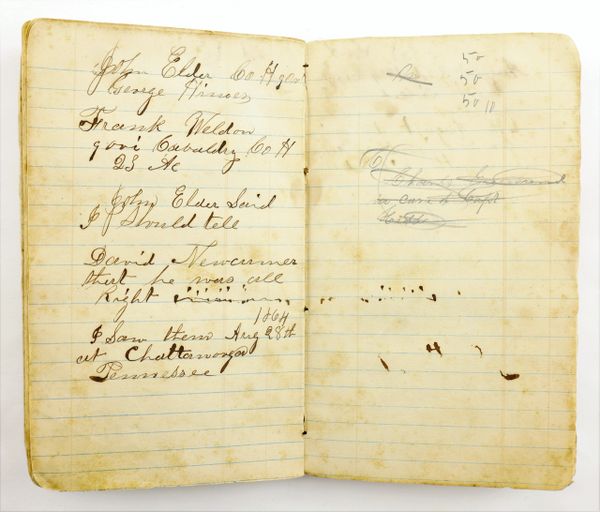 John Elder Co H 9ovi
George Himes
Frank Weldon
9ovi Cavaldry Co H
23 Ac
John Elder Said
I Should tell
David Newcummer
that he was all
Right
1864
I Saw them Aug 28th
at Chattanooga
Tennessee
50
50
50 10
Charls
in care of Capt